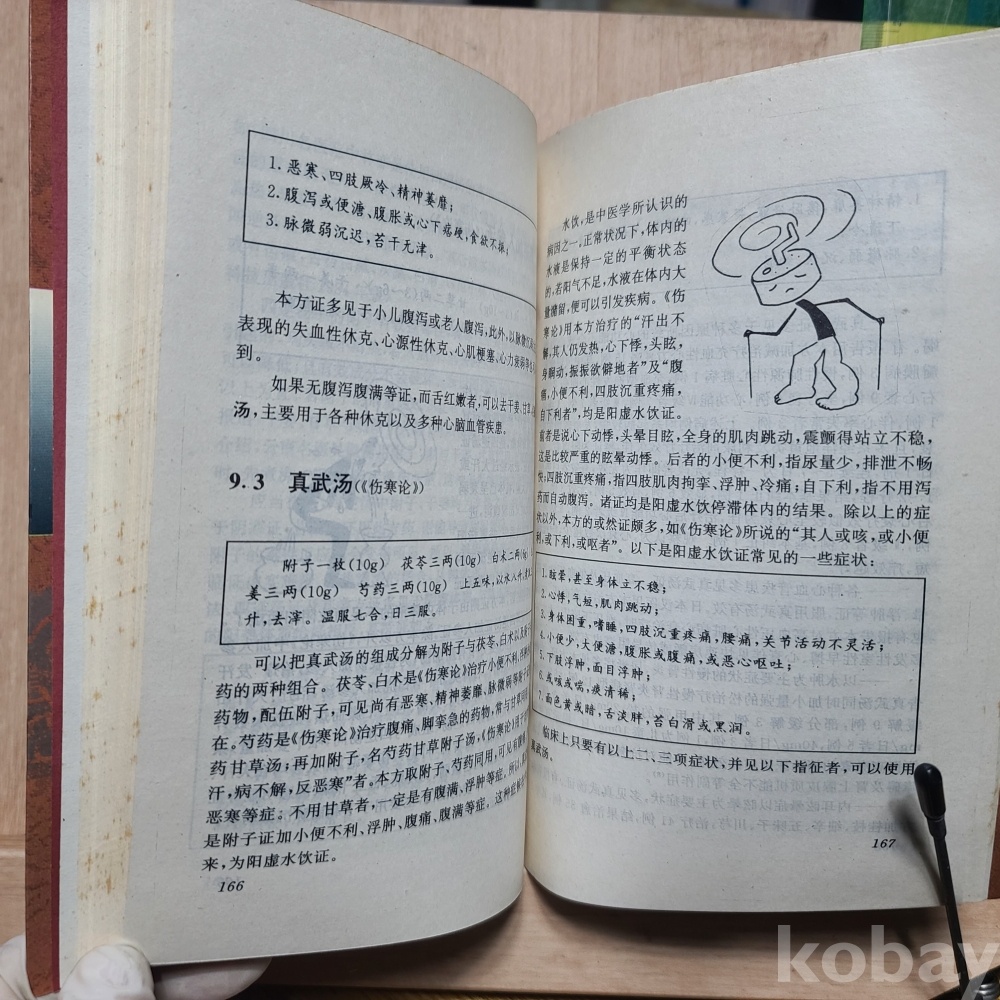 1.恶寒、四肢厥冷、精神萎靡；
2.腹泻或便溏、腹胀或心下痞硬，食欲不振；
3.脉微弱沉迟，苔干无津。
本方证多见于小儿腹泻或老人腹泻，此外，以脉微沉
表现的失血性休克、心源性休克、心肌梗塞、心力衰弱等
到。
如果无腹泻腹满等证，而舌红嫩者，可以去干姜、甘草
汤，主要用于各种休克以及多种心脑血管疾患。
9.3 真武汤(《伤寒论》)
附子一枚(10g) 茯苓三两(10g) 白术二两(6g)
姜三两(10g) 芍药三两(10g) 上五味，以水八升，煮
升，去滓。温服七合，日三服。
可以把真武汤的组成分解为附子与茯苓、白术以及
药的两种组合。茯苓、白术是《伤寒论》治疗小便不利、浮肿
药物，配伍附子，可见尚有恶寒、精神萎靡、脉微弱等附子
在。芍药是《伤寒论》治疗腹痛、脚挛急的药物，常与甘草
药甘草汤；再加附子，名芍药甘草附子汤，《伤寒论》用于
汗，病不解，反恶寒”者。本方取附子、芍药同用，可见有腹
恶寒等症。不用甘草者，一定是有腹满、浮肿等症。所以，
是附子证加小便不利、浮肿、腹痛、腹满等症。这种症
来，为阳虚水饮证。
166
水饮，是中医学所认识的
病因之一，正常状况下，体内的
水液是保持一定的平衡状态
的，若阳气不足，水液在体内大
量潴留，便可以引发疾病。《伤
寒论》用本方治疗的“汗出不
解，其人仍发热，心下悸，头眩，
身瞤动，振振欲僻地者”及“腹
痛，小便不利，四肢沉重疼痛，
自下利者”，均是阳虚水饮证。
前者是说心下动悸，头晕目眩，全身的肌肉跳动，震颤得站立不稳，
这是比较严重的眩晕动悸。后者的小便不利，指尿量少，排泄不畅
快；四肢沉重疼痛，指四肢肌肉拘挛、浮肿、冷痛；自下利，指不用泻
药而自动腹泻。诸证均是阳虚水饮停滞体内的结果。除以上的症
状以外，本方的或然证颇多，如《伤寒论》所说的“其人或咳，或小便
利，或下利，或呕者”。以下是阳虚水饮证常见的一些症状：
1.眩晕，甚至身体立不稳；
2.心悸，气短，肌肉跳动；
3.身体困重，嗜睡，四肢沉重疼痛，腰痛，关节活动不灵活；
4.小便少，大便溏，腹胀或腹痛，或恶心呕吐；
5.下肢浮肿，面目浮肿；
6.或咳或喘，痰清稀；
7.面色黄或暗，舌淡胖，苔白滑或黑润。
临床上只要有以上二、三项症状，并见以下指征者，可以使用
真武汤。
167
kobay